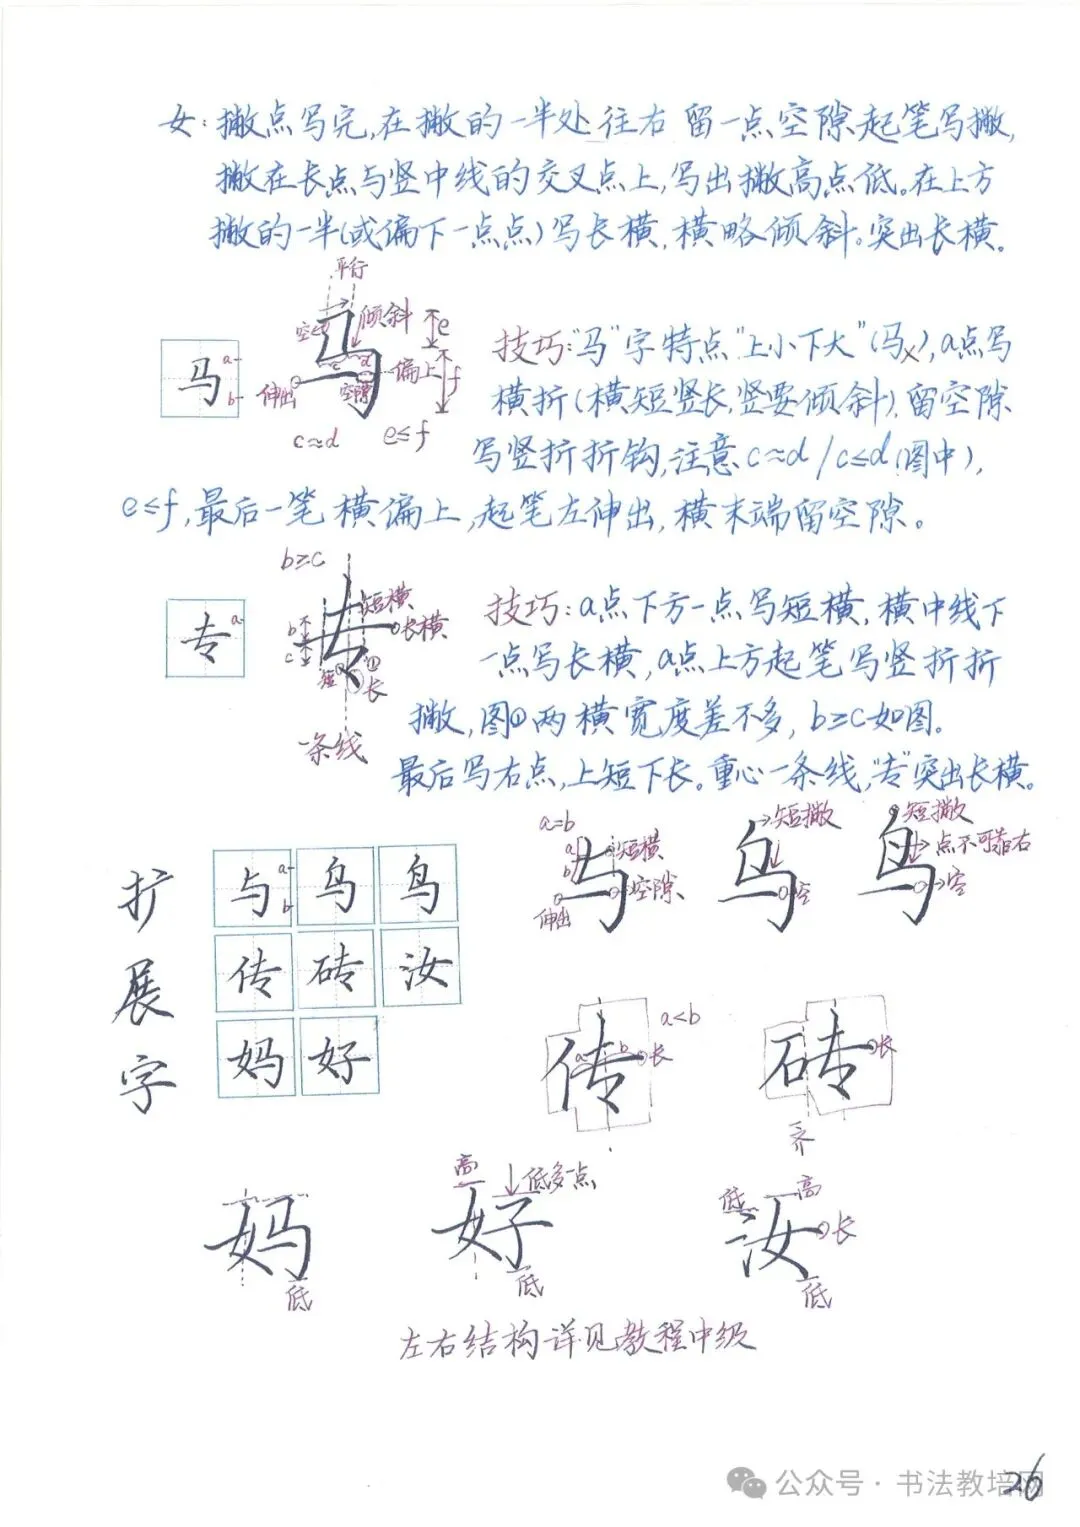 女：撇点写完，在撇的一半处往右留一点空隙起笔写撇，
撇在长点与竖中线的交叉点上，写出撇高点低。在上方
撇的一半（或偏下一点点）写长横，横略倾斜。突出长横。
平行
空
倾斜
e
马
a
b
伸出
c
d
空隙
偏上
f
c≈d
e≤f
技巧：“马”字特点“上小下大”（马x），a点写
横折（横短竖长，竖要倾斜）留空隙
写竖折折钩，注意c≈d/c≤d（图中），
e≤f，最后一笔横偏上，起笔左伸出，横末端留空隙。
b≥c
专
a
短横
长横
b
c
短
①
长
一条线
技巧：a点下方一点写短横，横中线下
一点写长横，a点上方起笔写竖折折
撇，图①两横宽度差不多，b≥c如图。
最后写右点，上短下长。重心一条线，“专”突出长横。
扩展字
与 乌 鸟
a
b
传 砖 汝
妈 好
a=b
a
b
与
短横
空隙
伸出
乌
短撇
空
鸟
短撇
点不可靠右
空
传
a<b
a
b
长
砖
长
齐
妈
低
高
好
低多一点
低
低
高
汝
长
低
左右结构详见教程中级
公众号·书法教培网
26